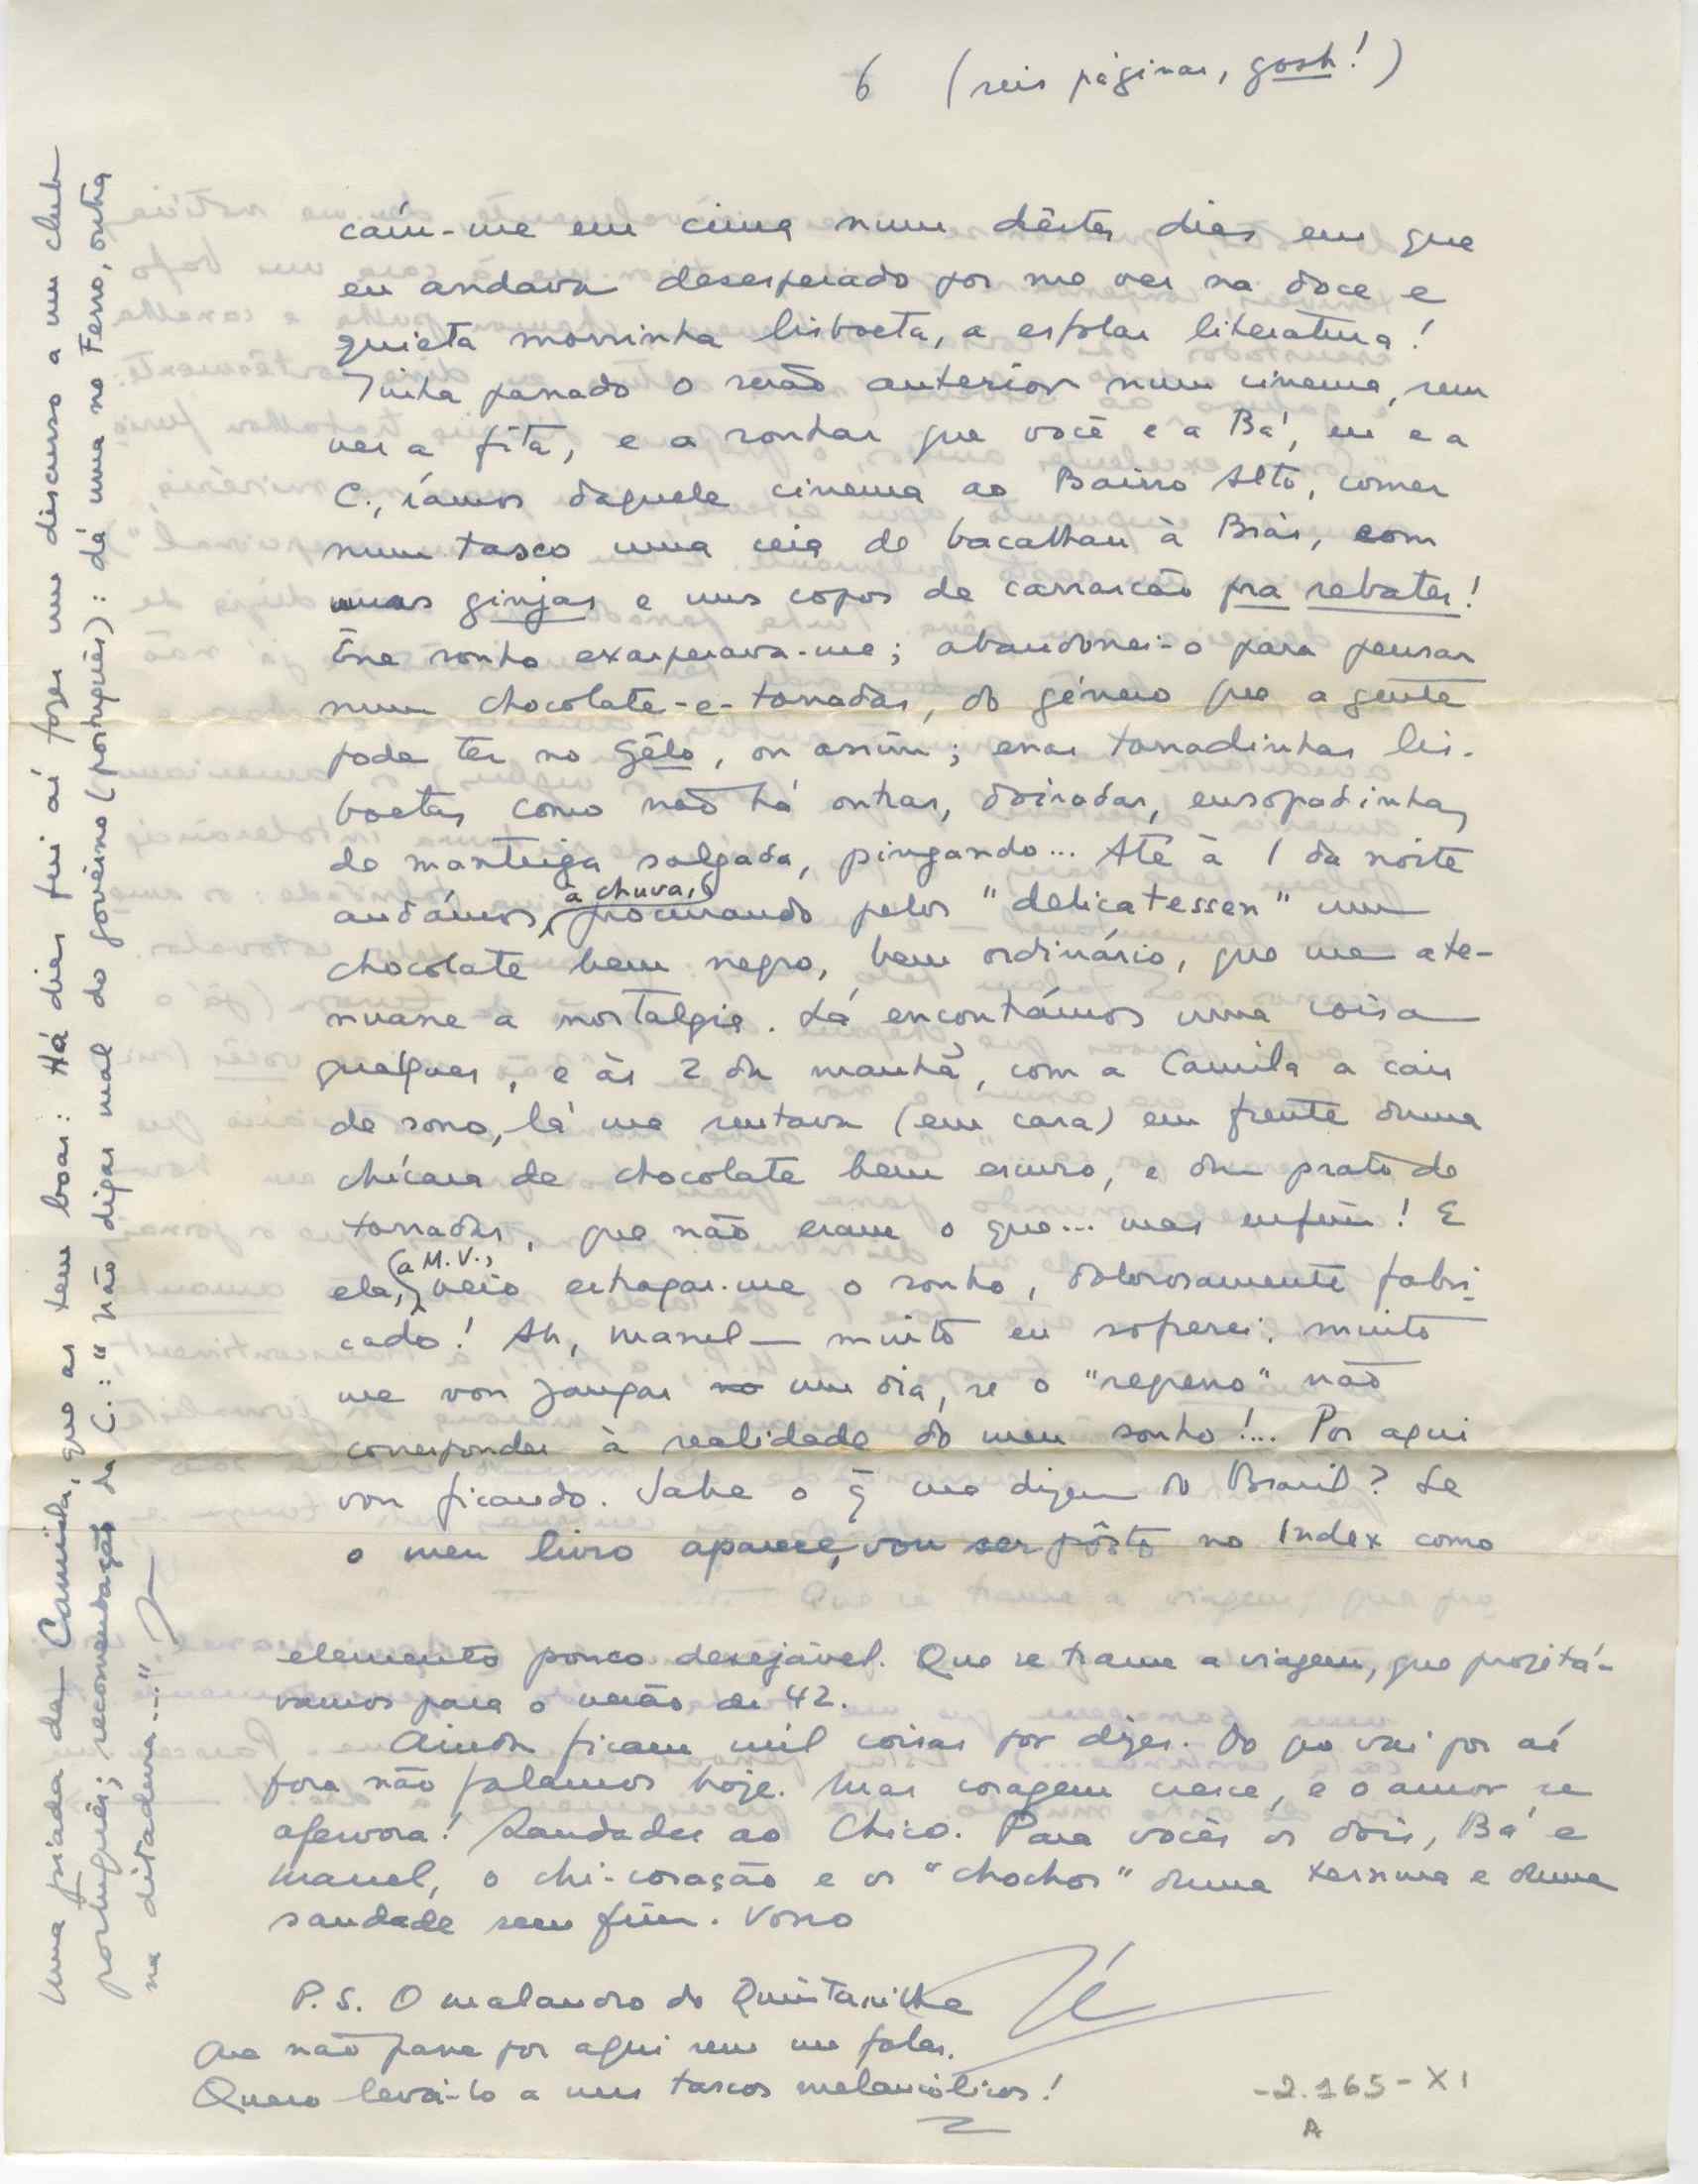 6 (seis páginas, gosh!)
caíu-me em cima num dêstes dias em que
eu andava desesperado por me ver na doce e
quieta morrinha lisboeta, a esfolar literatura!
Tinha passado o serão anterior num cinema, sem
ver a fita, e a sonhar que você e a Bá, eu e a
C., íamos daquele cinema ao Bairro Alto, comer
num tasco uma ceia de bacalhau à Brás, com
umas ginjas e uns copos de carrascão pra rebater!
Êsse sonho exasperava-me; abandonei-o para pensar
num chocolate-e-torradas, do género que a gente
pode ter no Gêlo, ou assim; essas torradinhas lis-
boetas como não há outras, doiradas, ensopadinhas
de manteiga salgada, pingando... Até à 1 da noite
andámos, à chuva, procurando pelos "delicatessen" um
chocolate bem negro, bem ordinário, que me ate-
nuasse a nostalgia. Lá encontrámos uma coisa
qualquer, e às 2 da manhã, com a Camila a cair
de sono, lá me sentava (em casa) em frente duma
chícara de chocolate bem escuro, e dum prato de
torradas, que não eram o que... mas enfim! E
ela, (a M.V.), veio estragar-me o sonho, dolorosamente fabri-
cado! Ah, Manel — muito eu sofrerei, muito
me vou zangar no um dia, se o "regresso" não
corresponder à realidade do meu sonho!... Por aqui
vou ficando. Sabe o q̃ me dizem do Brasil? Se
o meu livro aparece, vou ser pôsto no Index como
elemento pouco desejável. Que se trame a viagem, que projetá-
vamos para o verão de 42.
Ainda ficam mil coisas por dizer. Do que vai por aí
fora não falamos hoje. Mas coragem cresce, e o amor se
afervora! Saudades ao Chico. Para vocês os dois, Bá e
Manel, o chi-coração e os "chochos" duma ternura e duma
saudade sem fim. Vosso
Zé
P.S. O malandro do Quintanilha
que não passe por aqui sem me falar.
Quero levá-lo a uns tascos melancólicos!
-2.165-XI
A
Uma piada da Camila, que as tem boas: Há dias fui aí fazer um discurso a um club
português; recomendação da C.: "não digas mal do governo (português): dá uma no Ferro, outra
na ditadura..."